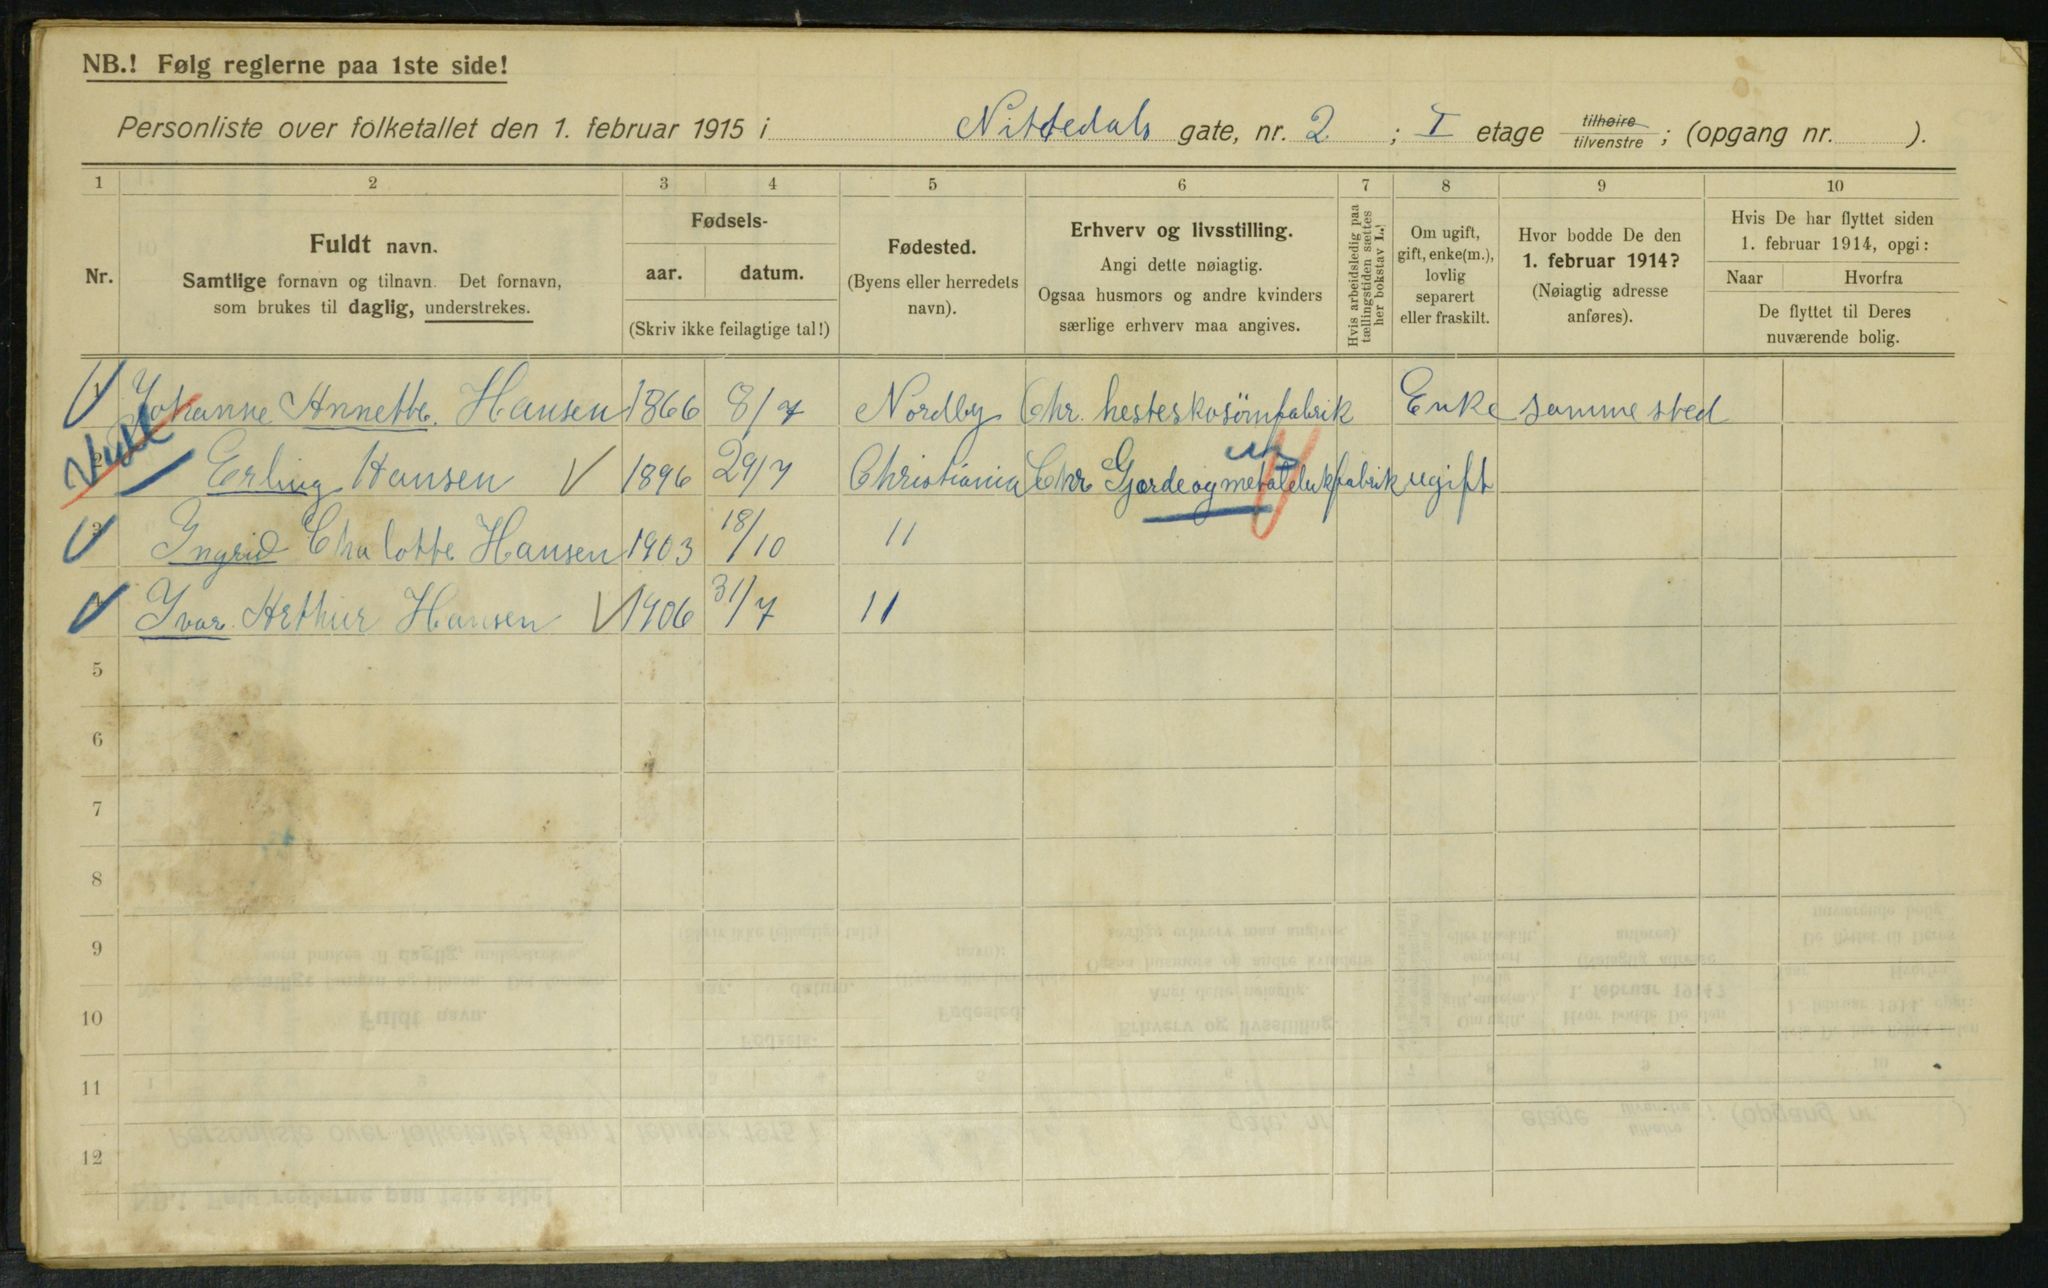 NB.! Følg reglerne paa 1ste side!
Personliste over folketallet den 1. februar 1915 i Nittedals gate, nr. 2 ; I etage tilhøire tilvenstre ; (opgang nr. ).
1 2 3 4 5 6 7 8 9 10
Nr.
Fuldt navn.
Samtlige fornavn og tilnavn. Det fornavn,
som brukes til daglig, understrekes.
Fødsels-
aar. datum.
(Skriv ikke feilagtige tal!)
Fødested.
(Byens eller herredets
navn).
Erhverv og livsstilling.
Angi dette nøiagtig.
Ogsaa husmors og andre kvinders
særlige erhverv maa angives.
Hvis arbeidsledig paa
tællingstiden sættes
her bokstav L.)
Om ugift,
gift, enke(m.),
lovlig
separert
eller fraskilt.
Hvor bodde De den
1. februar 1914?
(Nøiagtig adresse
anføres).
Hvis De har flyttet siden
1. februar 1914, opgi:
Naar Hvorfra
De flyttet til Deres
nuværende bolig.
1 Johanne Annette. Hansen 1866 8/7 Nordby Chr. hesteskosømfabrik Enke samme sted
2 Erling Hansen V 1896 29/7 Christiania Chr Gjørde og metaldukfabrik ugift
3 Ingrid Chalotte Hansen 1903 18/10 11
4 Ivar. Arthur Hansen V 1906 31/7 11
5
6
7
8
9
10
11
12